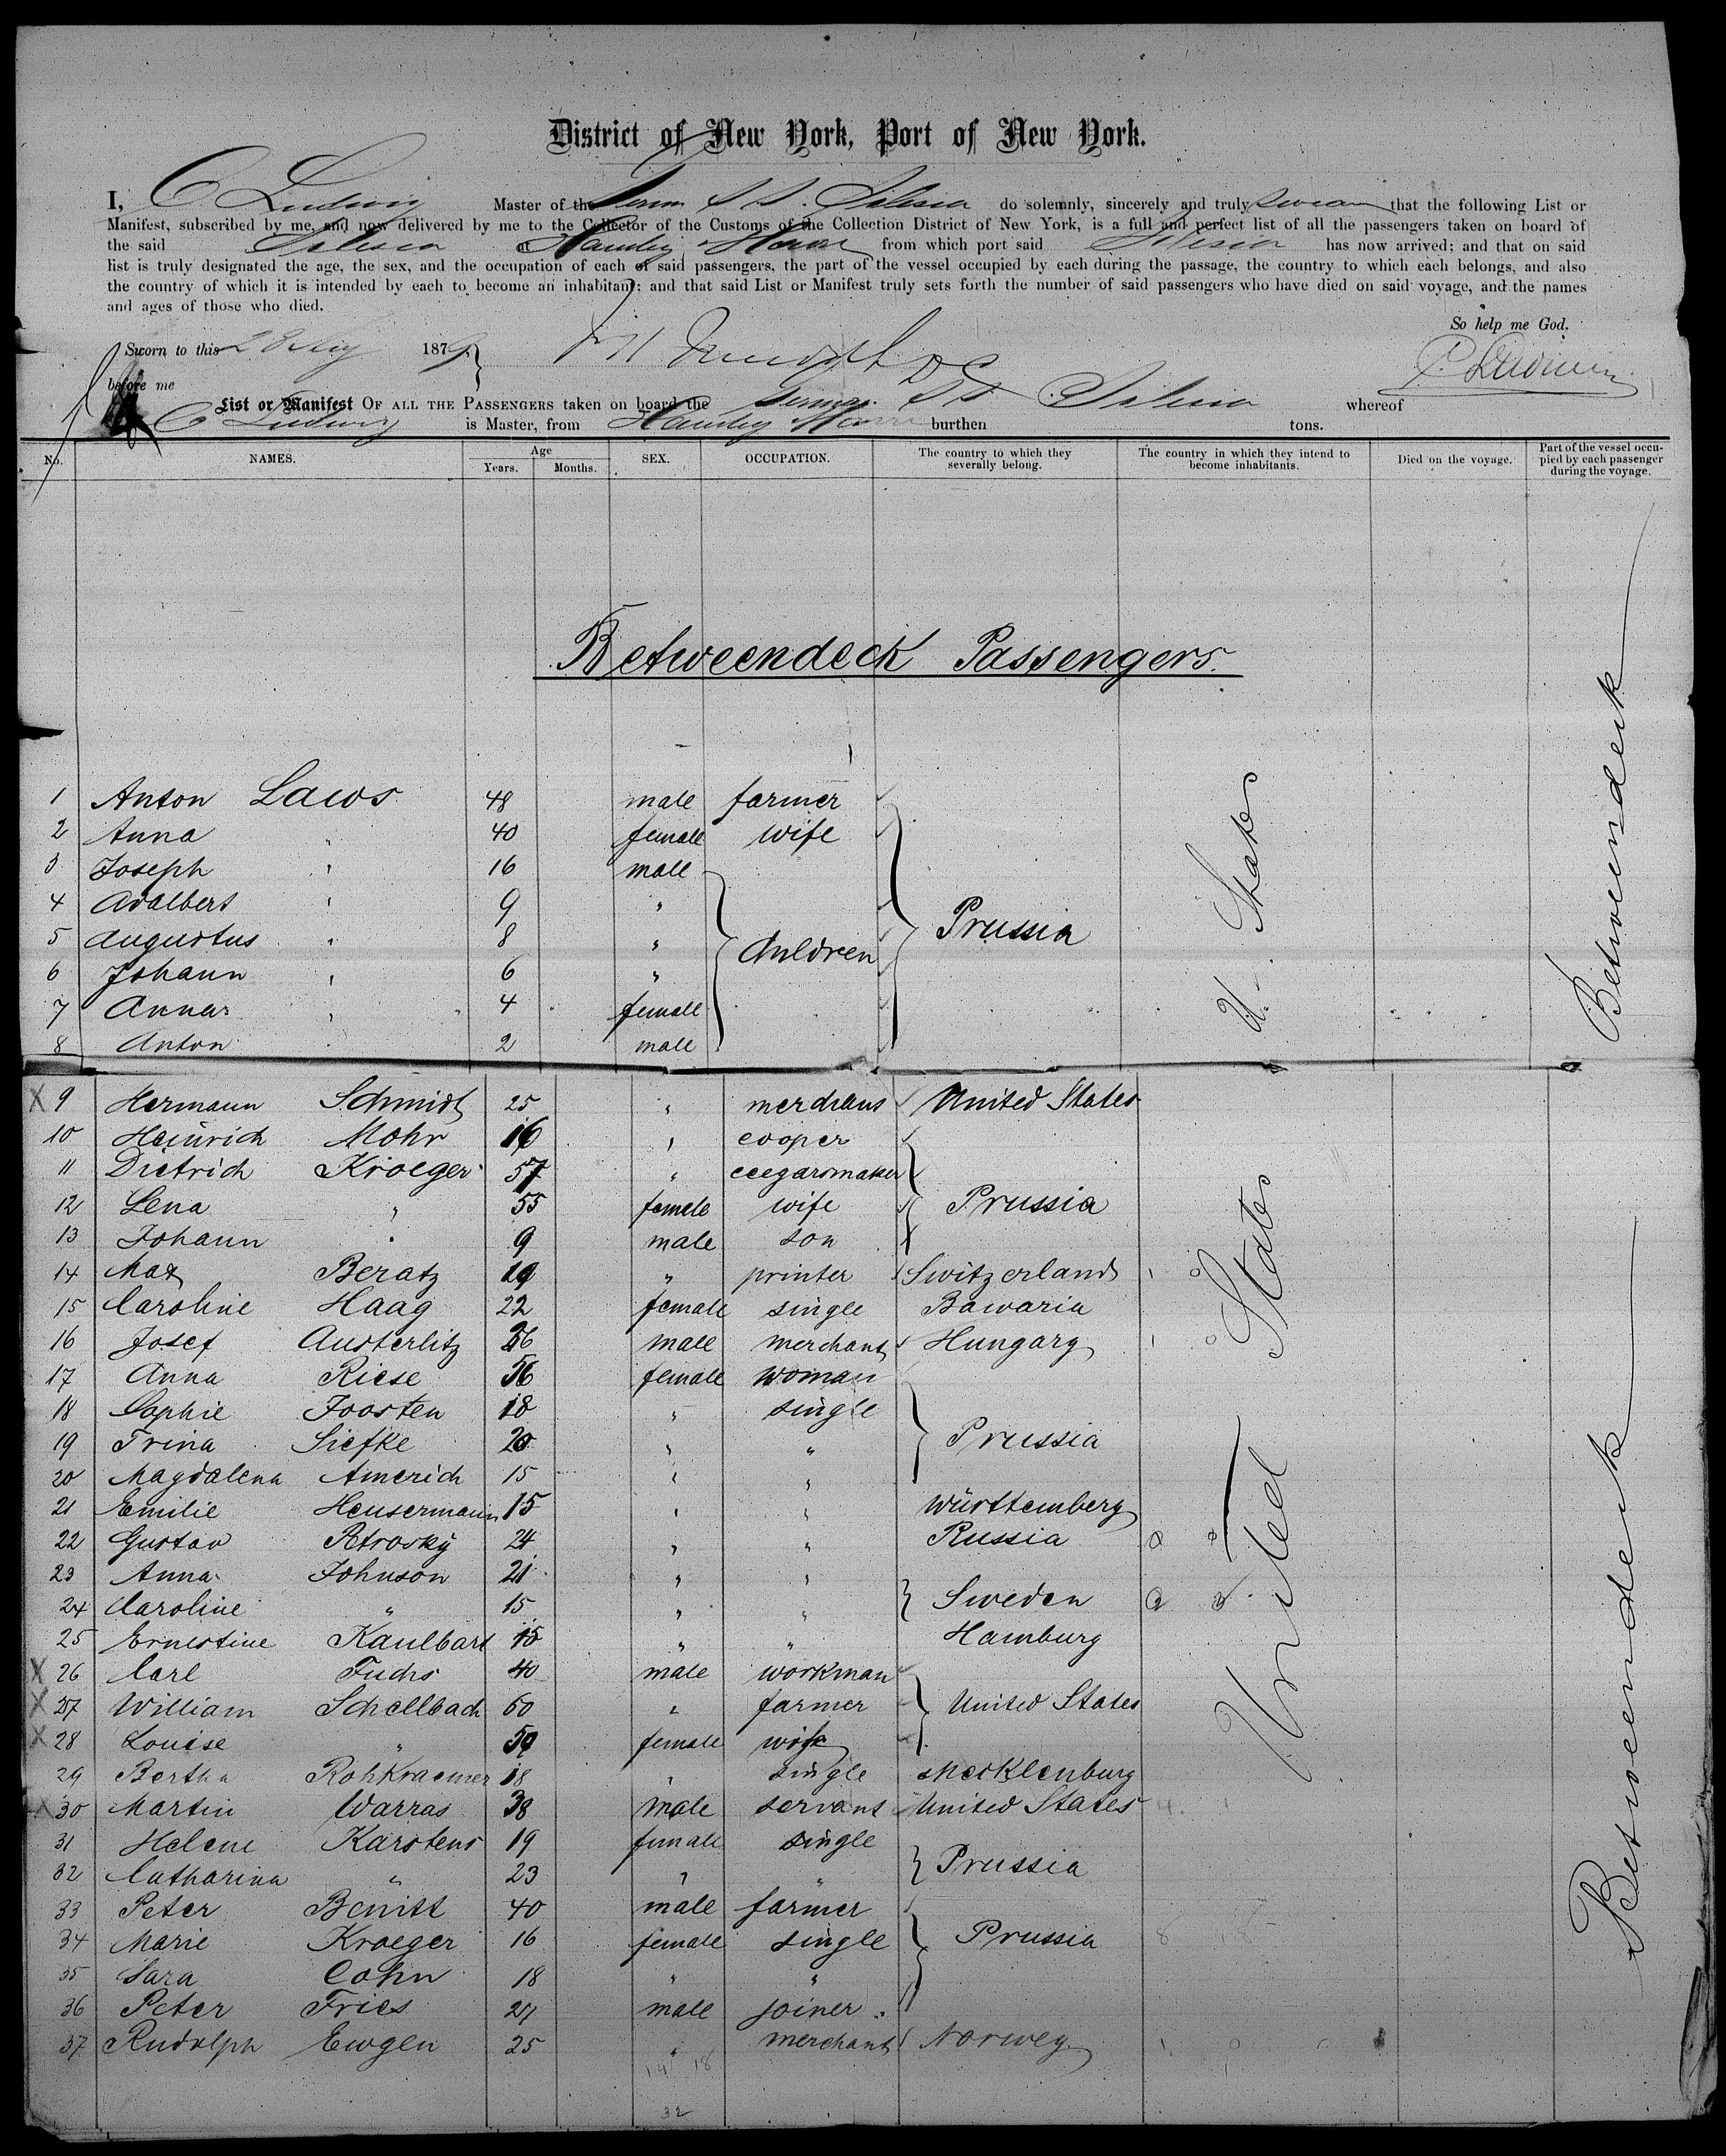 District of New York, Port of New York.
I, C Ludwig Master of the Germ. S S. Silesia do solemnly, sincerely and truly swear that the following List or
Manifest, subscribed by me, and now delivered by me to the Collector of the Customs of the Collection District of New York, is a full and perfect list of all the passengers taken on board of
the said Silesia at Hambg & Havre from which port said Silesia has now arrived: and that on said
list is truly designated the age, the sex, and the occupation of each of said passengers, the part of the vessel occupied by each during the passage, the country to which each belongs, and also
the country of which it is intended by each to become an inhabitant: and that said List or Manifest truly sets forth the number of said passengers who have died on said voyage, and the names
and ages of those who died.
So help me God.
Sworn to this 28 1879
C. Ludwig
before me
List or Manifest OF ALL THE PASSENGERS taken on board the German S S Silesia whereof
C Ludwig is Master, from Hambg Havre burthen tons.
No. NAMES. Age Years. Months. SEX. OCCUPATION. The country to which they severally belong. The country in which they intend to become inhabitants. Died on the voyage. Part of the vessel occupied by each passenger during the voyage.
Betweendeck Passengers.
1 Anton Laws 48 male farmer
2 Anna " 40 female wife
3 Joseph " 16 male
4 Adalbert " 9 "
5 Augustus " 8 " Children Prussia U. States Betweendeck
6 Johann " 6 "
7 Anna " 4 female
8 Anton 2 male
X 9 Hermann Schmidt 25 " merchant United States
10 Heinrich Mohr 16 " cooper
11 Dietrich Kroeger 57 " ceegarsmaker
12 Lena " 55 female wife Prussia
13 Johann " 9 male son
14 Max Beratz 19 " printer Switzerland 1 0
15 Caroline Haag 22 female single Bawaria
16 Josef Austerlitz 26 male merchant Hungary 1 0
17 Anna Riese 56 female woman
18 Sophie Joosten 18 " single
19 Trina Siefke 20 " " Prussia
20 Magdalena Americh 15 " "
21 Emilie Heusermann 15 " " Württemberg
22 Gustav Petrosky 24 " " Russia
23 Anna Johnson 21 " "
24 Caroline " 15 " " Sweden
25 Ernestine Kaulbart 15 " " Hamburg
X 26 Carl Fuchs 40 male workman
X 27 William Schellbach 60 " farmer United States
X 28 Louise " 59 female wife
29 Bertha Rohkraemer 18 " single Mecklenburg
X 30 Martin Warras 38 male servant United States
31 Helene Karstens 19 female single
32 Catharina " 23 " " Prussia
33 Peter Benitt 40 male farmer
34 Marie Kroeger 16 female single Prussia
35 Sara Cohn 18 " "
36 Peter Fries 27 male joiner
37 Rudolph Ewgen 25 " merchant Norweg
United States
Betweendeck
32